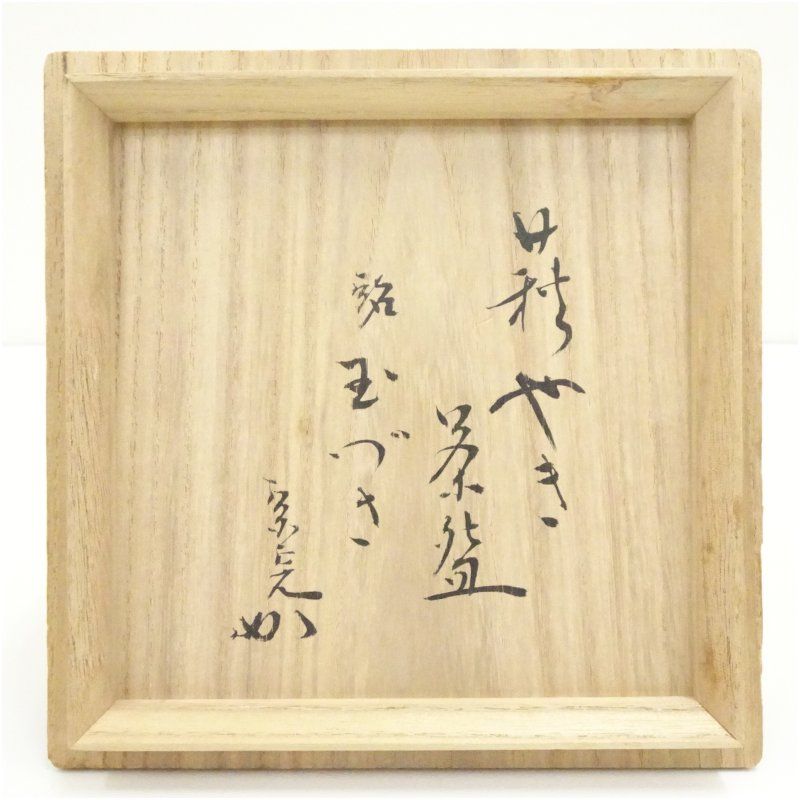 萩やき
茶盌
銘 玉づさ